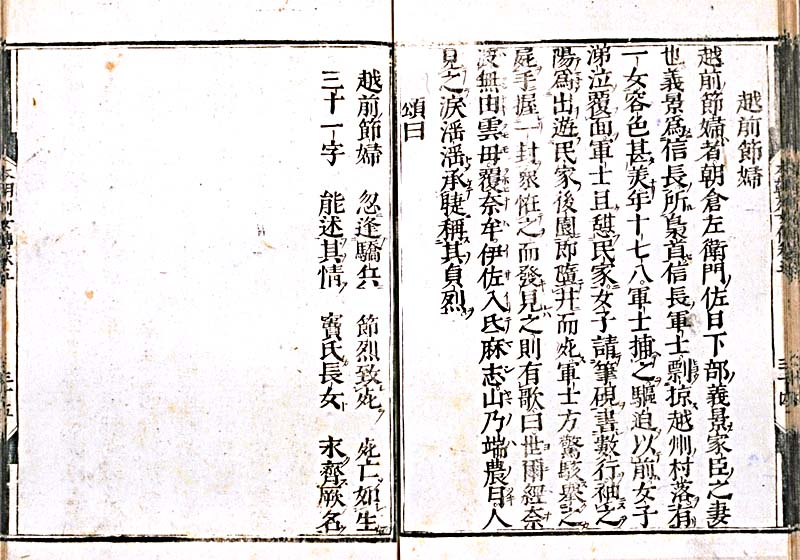 越前節婦
越前節婦者朝倉左衛門佐日下部義景家臣之妻
也義景爲信長所梟首信長軍士剽掠越州村落有
一女容色甚美年十七八軍士捕之驅迫以前女子
涕泣覆面軍士且憩民家女子請筆硯書數行袖之
陽爲出遊民家後園即墮井而死軍士方驚駭舉之
屍手握一封衆恠之而發見之則有歌曰世爾經奈
波無由雲毋覆奈牟伊佐入氐麻志山乃端農月人
見之涙潘潘承睫稱其貞烈
頌曰
越前節婦 忽逢驕兵 節烈致死 死亡如生
三十一字 能述其情 竇氏長女 求齊厥名